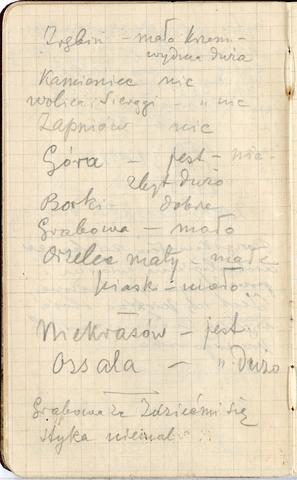 Zrębin - mało krzem-
wydma duża
Kamieniec nic
wolica, Sieragi - „ nic
Zapniów nic
Góra - jest - nie-
zbyt dużo
Borki - dobre
Grabowa - mało
Orzelec mały - małe
piaski - mało
Niekrasów - jest
Ossala - „ dużo
Grabowa ze Zdziećmi się
styka niemal